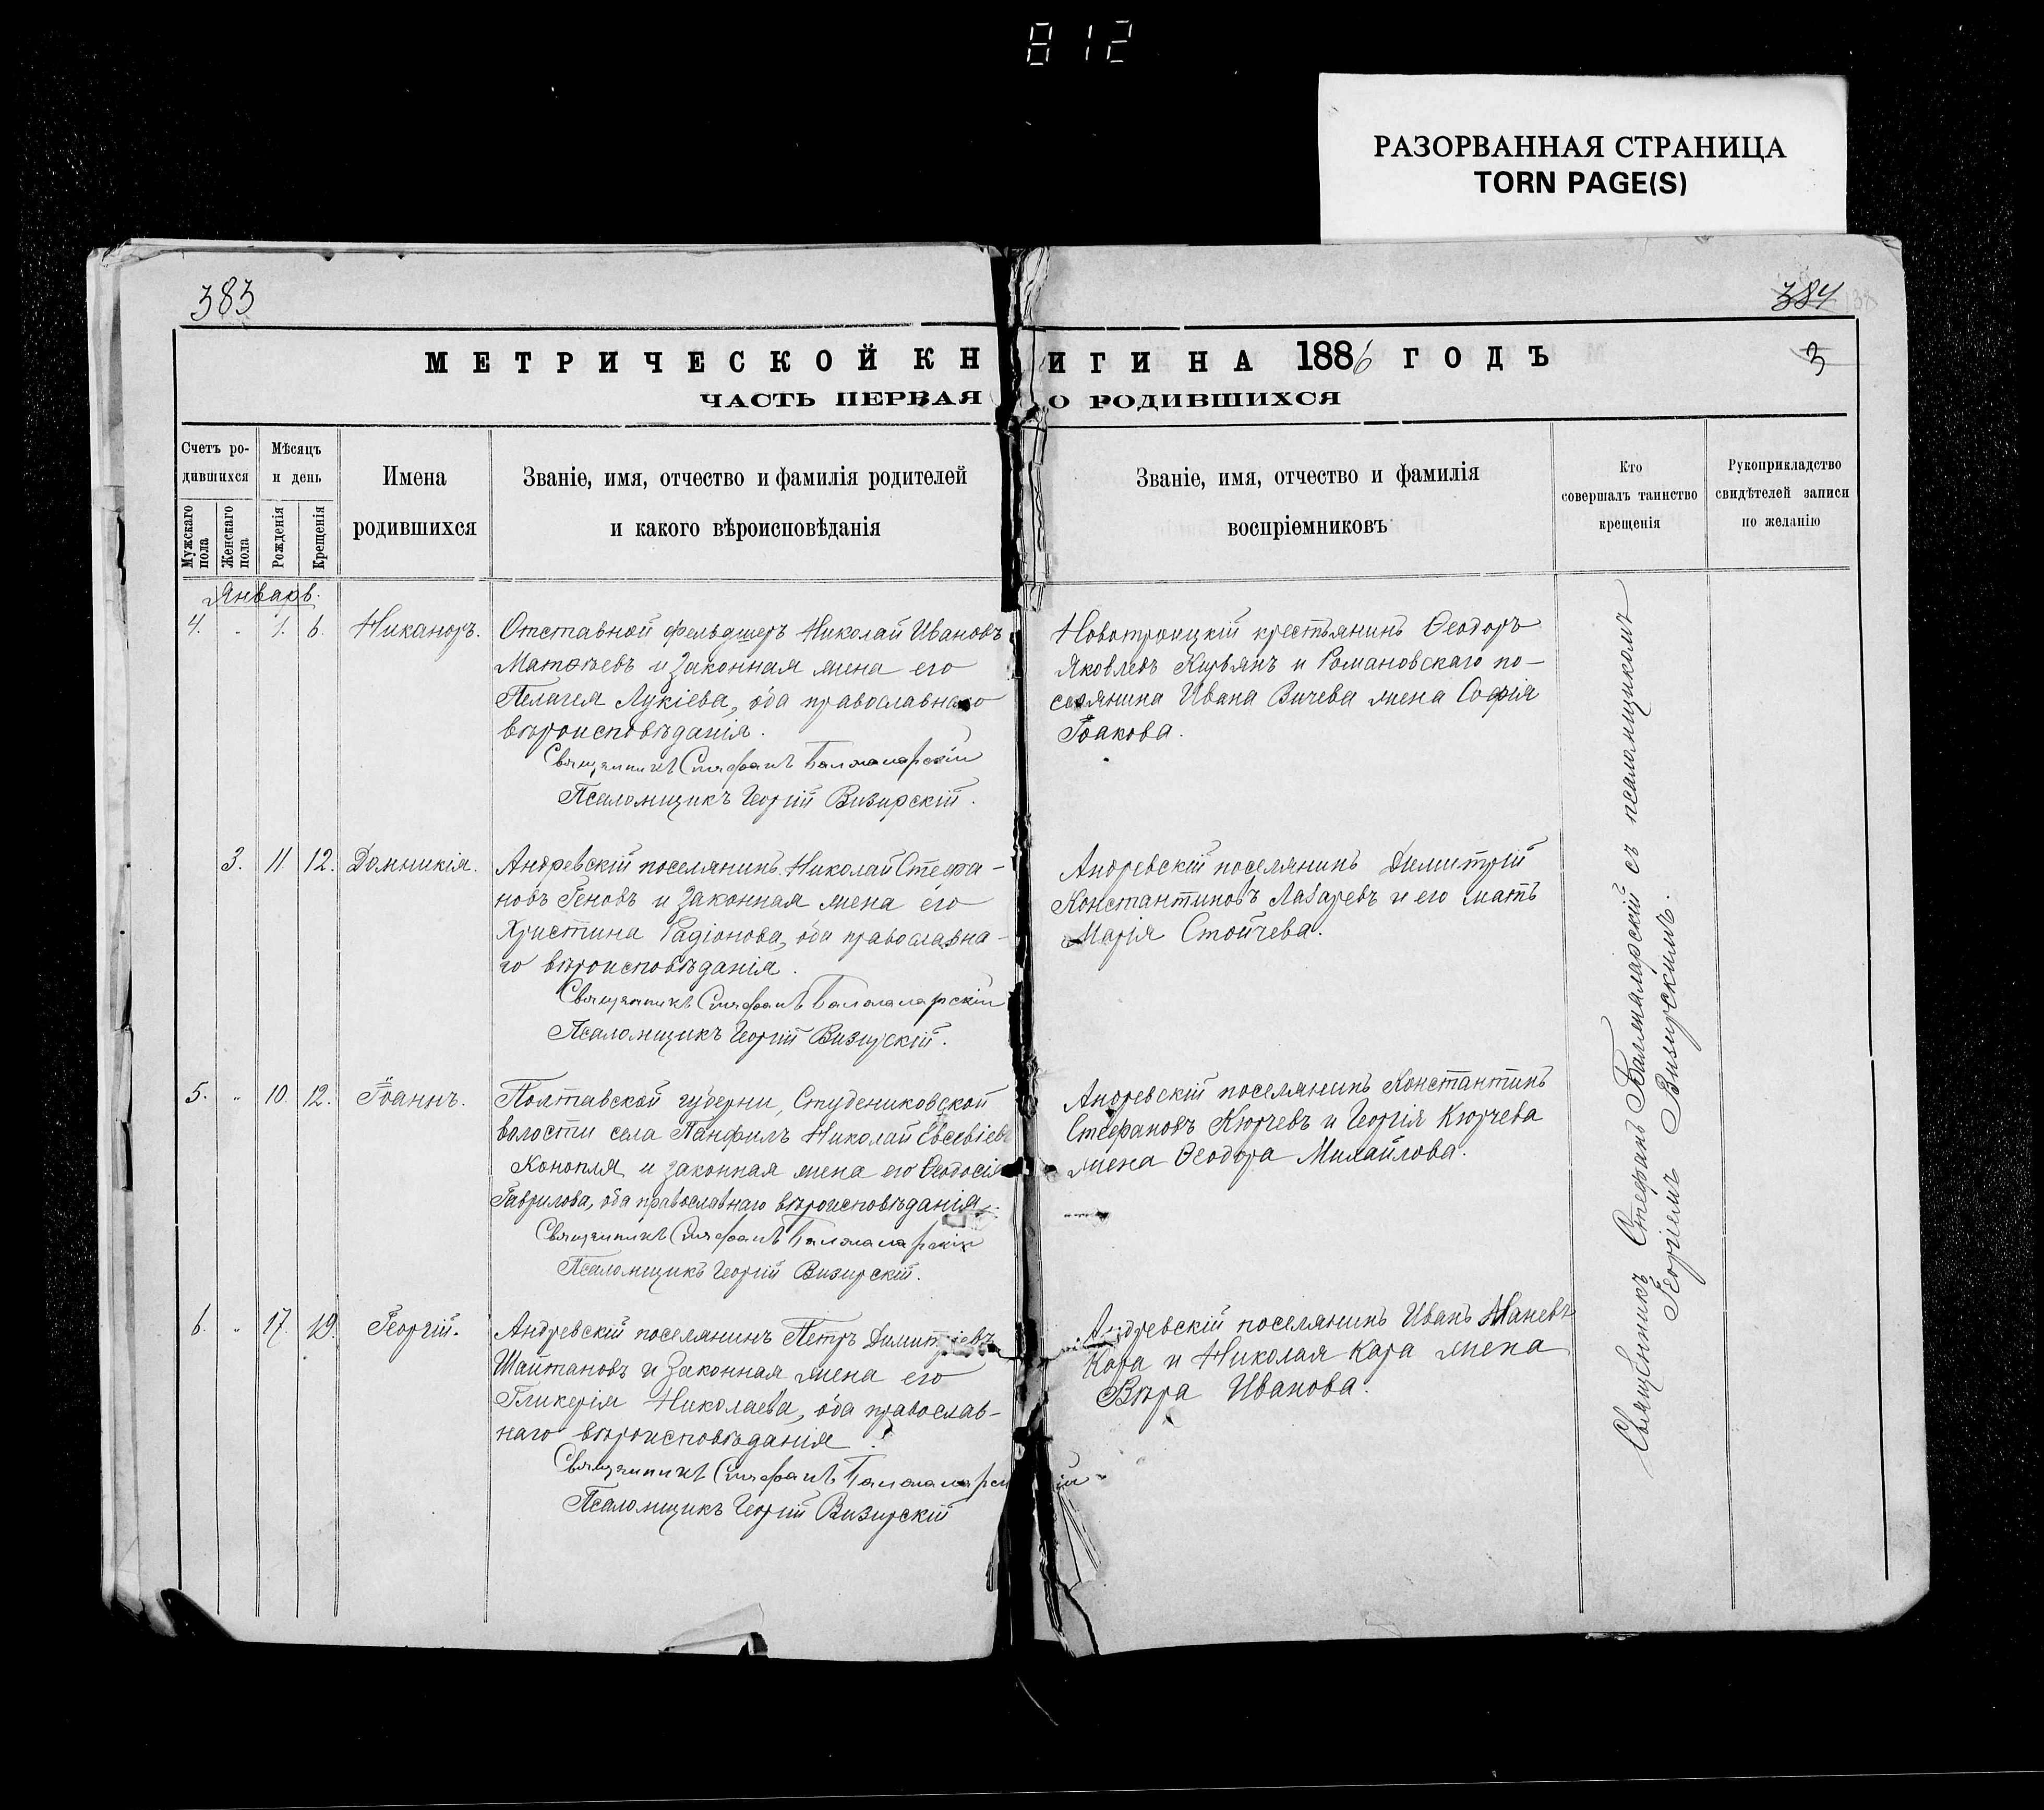 812
РАЗОРВАННАЯ СТРАНИЦА
TORN PAGE(S)
383
384
МЕТРИЧЕСКОЙ КНИГИ НА 1886 ГОДЪ
3
ЧАСТЬ ПЕРВАЯ О РОДИВШИХСЯ
Счетъ ро-
дившихся
Мужскаго пола
Женскаго пола
Мѣсяцъ
и день
Рожденія
Крещенія
Имена
родившихся
Званіе, имя, отчество и фамилія родителей
и какого вѣроисповѣданія
Званіе, имя, отчество и фамилія
воспріемниковъ
Кто
совершалъ таинство
крещенія
Рукоприкладство
свидѣтелей записи
по желанію
Январь.
4. " 1. 6. Никаноръ.
Отставной фельдшеръ Николай Ивановъ
Матѳѣевъ и законная жена его
Пелагея Лукіева, оба православнаго
вѣроисповѣданія.
Священникъ Стефанъ Балмаларскій
Псаломщикъ Георгій Визирскій.
Новотроицкій крестьянинъ Ѳеодоръ
Яковлевъ и Романовскаго по-
селянина Ивана Вичева жена Софія
Іоакова.
3. 11 12. Домникія.
Андревскій поселянинъ Николай Стефа-
новъ Геновъ и законная жена его
Христина Радіонова, оба православна-
го вѣроисповѣданія.
Священникъ Стефанъ Балмаларскій
Псаломщикъ Георгій Визирскій.
Андревскій поселянинъ Димитрій
Константиновъ Лазаревъ и его мать
Марія Стойчева.
5. " 10 12. Іоаннъ.
Полтавской губерни, Студениковской
волости села Панфилъ Николай Евсевіевъ
Конопля и законная жена его Ѳеодосія
Гаврилова, оба православнаго вѣроисповѣданія.
Священникъ Стефанъ Балмаларскій
Псаломщикъ Георгій Визирскій.
Андревскій поселянинъ Константинъ
Стефановъ Кюрчевъ и Георгія Кюрчева
жена Ѳеодора Михайлова.
6. " 17. 19. Георгій.
Андревскій поселянинъ Петръ Димитріевъ
Шайтановъ и законная жена его
Гликерія Николаева, оба православ-
наго вѣроисповѣданія.
Священникъ Стефанъ Балмаларскій
Псаломщикъ Георгій Визирскій
Андревскій поселянинъ Иванъ
Кара и Николая Кара жена
Вѣра Иванова.
Священникъ Стефанъ Балмаларскій съ псаломщикомъ
Георгіемъ Визирскимъ.